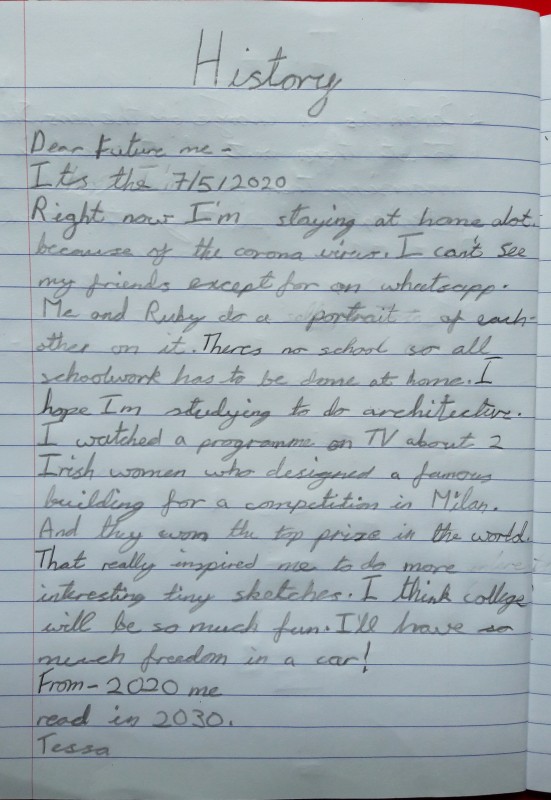 History
Dear Future me -
Its the 7/5/2020
Right now I'm staying at home alot.
because of the corona virus. I can't see
my friends except for on whatsapp.
Me and Ruby do a portrait of each-
other on it. Theres no school so all
schoolwork has to be done at home. I
hope Im studying to do architective.
I watched a programme on TV about 2
Irish women who designed a famous
building for a competition in Milan.
And they won the top prize in the world.
That really inspired me to do more
interesting tiny sketches. I think college
will be so much fun. I'll have so
much freedom in a car!
From - 2020 me
read in 2030.
Tessa